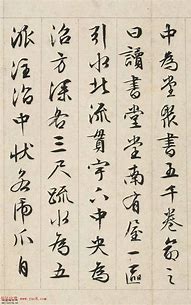 中為堂聚書五千卷命之
曰讀書堂堂南有屋一區
引水北流貫宇下中央為
沼方深各三尺疏水為五
派注沼中狀若虎爪自